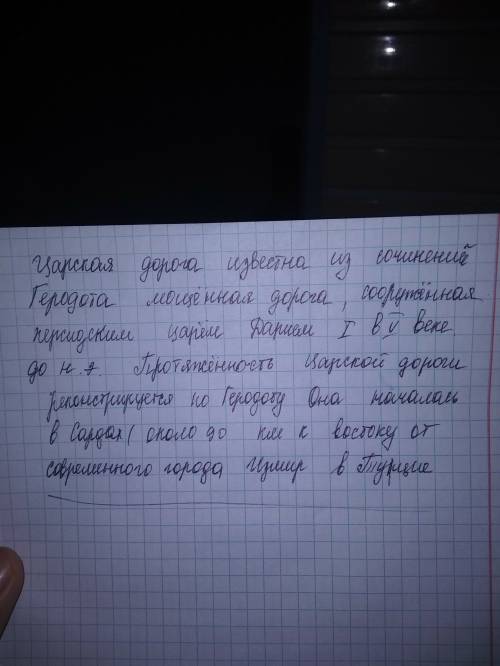 Царская дорога известна из сочинений
Геродота мощённая дорога, сооружённая
персидским царём Дарием I в V веке
до н.э. Протяжённость Царской дороги
реконструируется по Геродоту Она началась
в Сардах ( около 90 км к востоку от
современного города Измир в Турцие